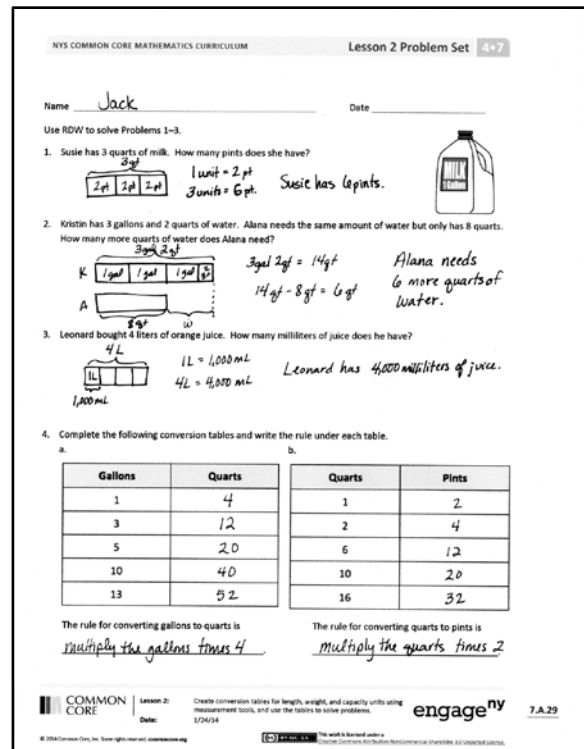 NYS COMMON CORE MATHEMATICS CURRICULUM Lesson 2 Problem Set 4•7
Name Jack Date
Use RDW to solve Problems 1–3.
1. Susie has 3 quarts of milk. How many pints does she have?
3 qt
2pt 2pt 2pt
1 unit = 2 pt
3 units = 6 pt.
Susie has 6 pints.
MILK
1 Gallon
2. Kristin has 3 gallons and 2 quarts of water. Alana needs the same amount of water but only has 8 quarts.
How many more quarts of water does Alana need?
3gal 2qt
K 1gal 1gal 1gal 2qt
A
8qt W
3gal 2qt = 14qt
14qt - 8qt = 6qt
Alana needs
6 more quarts of
water.
3. Leonard bought 4 liters of orange juice. How many milliliters of juice does he have?
4L
1L
1,000mL
1L = 1,000mL
4L = 4,000 mL
Leonard has 4,000 milliliters of juice.
4. Complete the following conversion tables and write the rule under each table.
a. b.
Gallons Quarts
1 4
3 12
5 20
10 40
13 52
The rule for converting gallons to quarts is
multiply the gallons times 4.
Quarts Pints
1 2
2 4
6 12
10 20
16 32
The rule for converting quarts to pints is
multiply the quarts times 2
COMMON
CORE
Lesson 2: Create conversion tables for length, weight, and capacity units using
measurement tools, and use the tables to solve problems.
Date: 1/24/14
engageny 7.A.29
© 2014 Common Core, Inc. Some rights reserved. commoncore.org
This work is licensed under a
Creative Commons Attribution-NonCommercial-ShareAlike 3.0 Unported License.